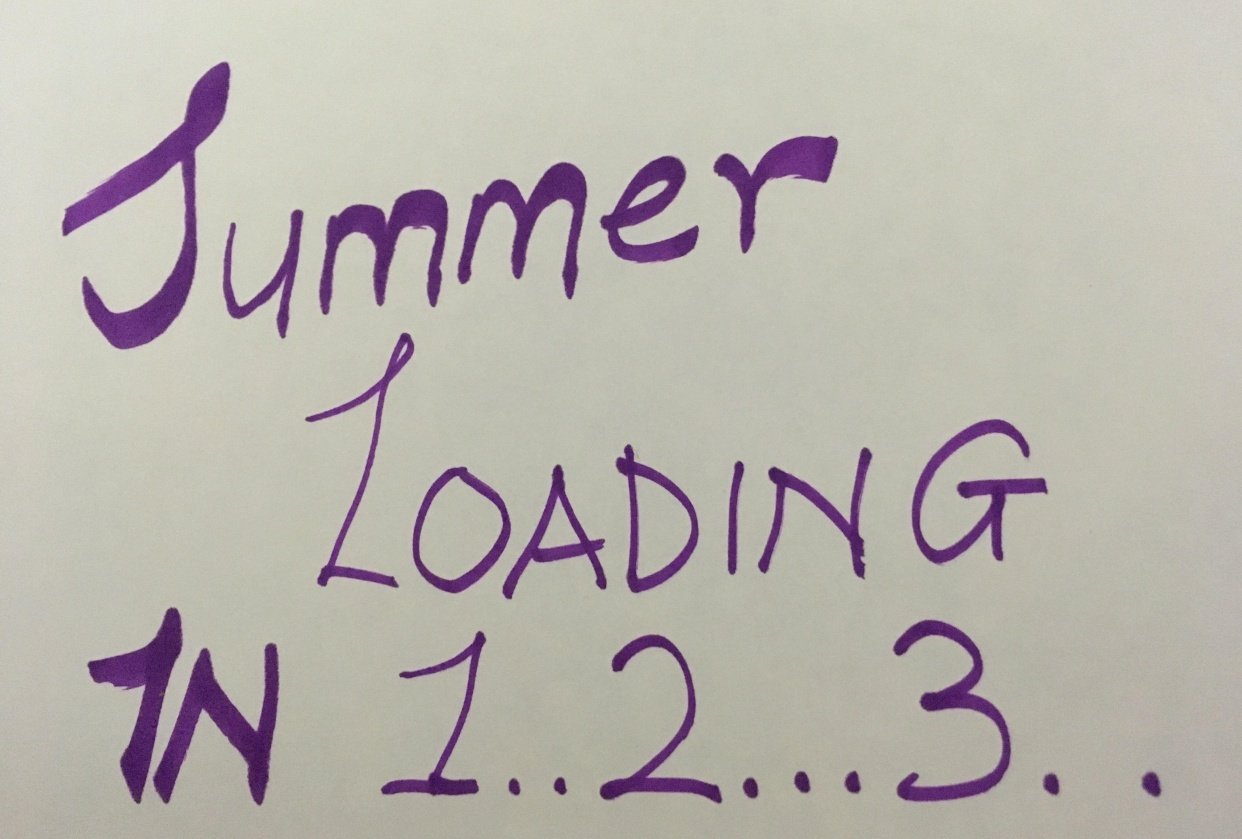 Summer
LOADING
IN 1..2...3..